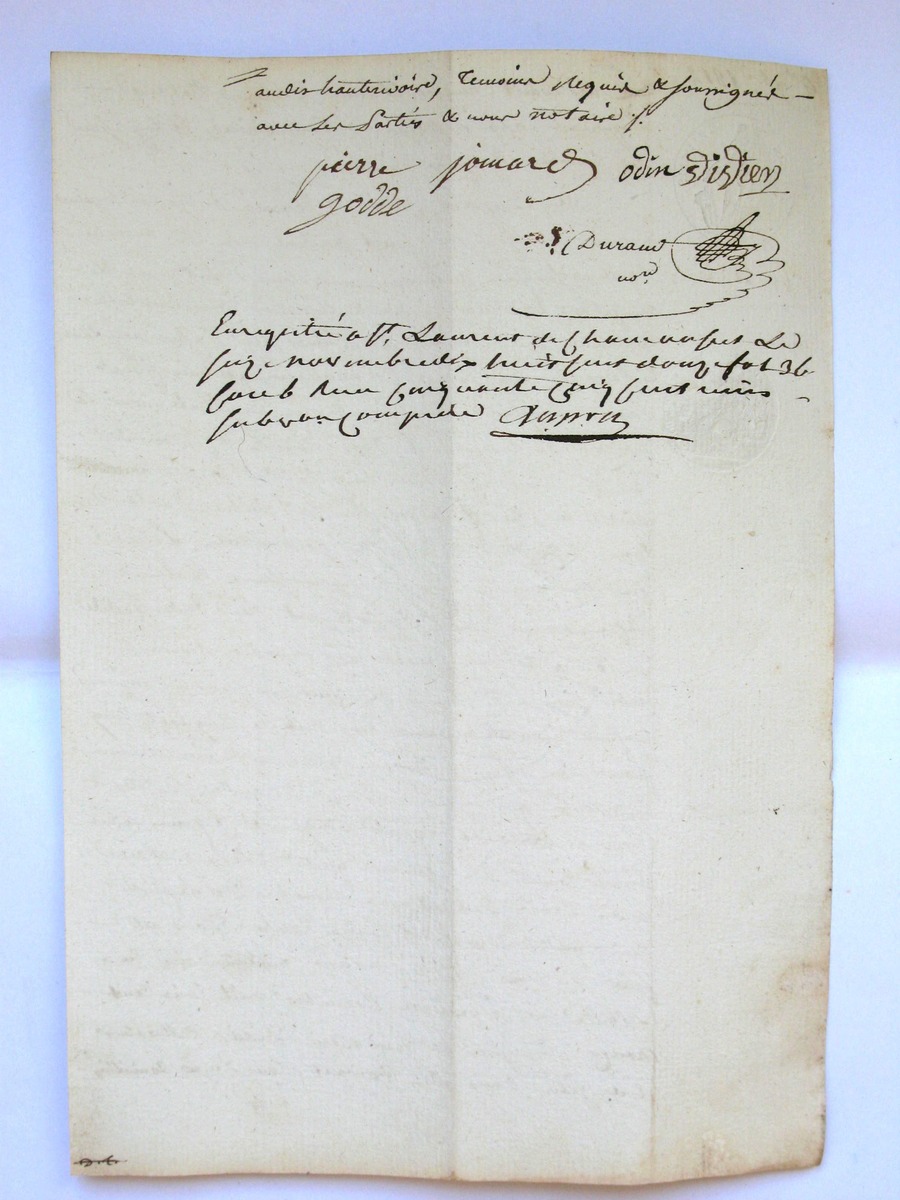 audit hauterivoire, temoins requis & soussignés
avec les Parties & nous notaire /.
pierre jomard odin didier
godde
Durand
not.re
Enregistré a St. Laurent de Chamousset Le
seize novembre dix huit cent douze fol 36
case 6 Recu cinquante cinq
subvon. comprise